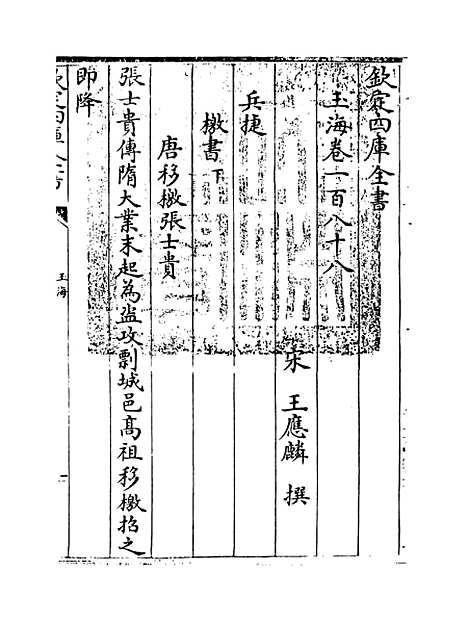 欽定四庫全書
玉海卷一百八十八
宋 王應麟 撰
兵捷
檄書下
唐移檄張士貴
張士貴傳隋大業末起為盗攻剽城邑髙祖移檄招之
即降
玉海